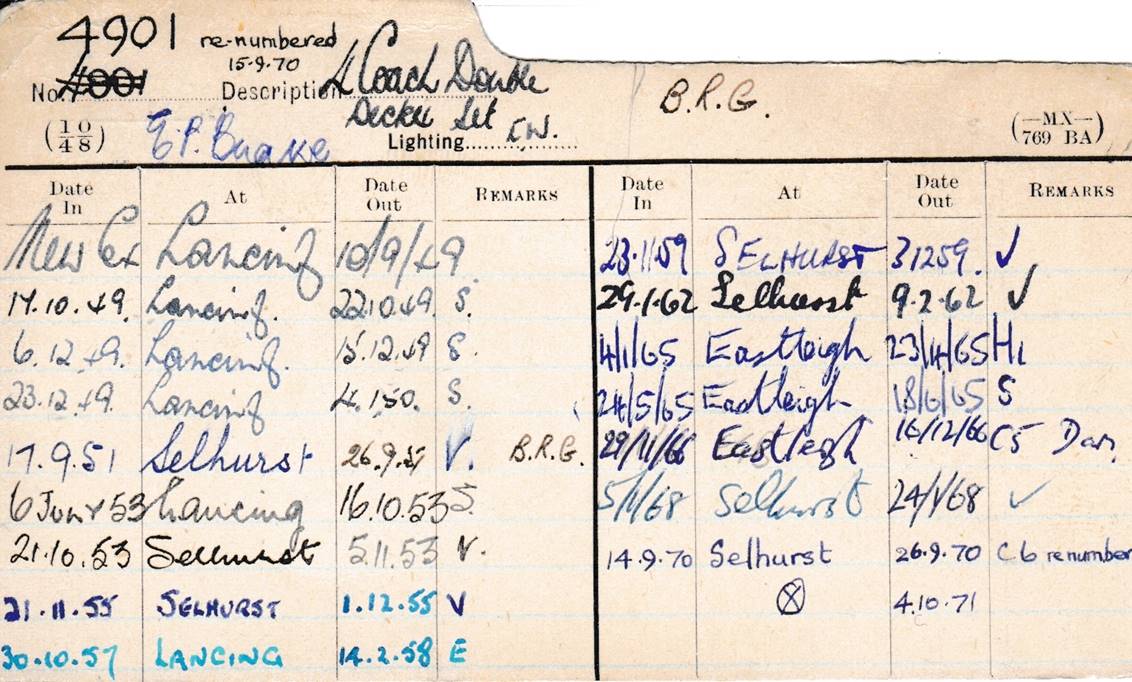 4901 re-numbered
15-9-70
No. 4001 Description 4 Coach Double
Decker Set B.R.G.
(10/48) E.P. Brake Lighting E.W. (—MX— 769 BA)
Date In At Date Out REMARKS Date In At Date Out REMARKS
New Ex Lancing 10/9/49 23.11.59 SELHURST 3 12 59. ✓
17.10.49. Lancing. 22.10.49. S. 29.1.62 Selhurst 9.2.62 ✓
6.12.49. Lancing. 15.12.49 S. 4/1/65 Eastleigh 23/4/65 H1
23.12.49. Lancing 4.1.50. S. 24/5/65 Eastleigh 18/6/65 S
17.9.51 Selhurst 26.9.51 V. B.R.G. 29/11/66 Eastleigh 16/12/66 C5 Dam.
6 July 53 Lancing 16.10.53 S. 5/1/68 Selhurst 24/1/68 ✓
21.10.53 Selhurst 5.11.53 V. 14.9.70 Selhurst 26.9.70 C6 renumber
21.11.55 SELHURST 1.12.55 V ⊗ 4.10.71
30.10.57 LANCING 14.2.58 E